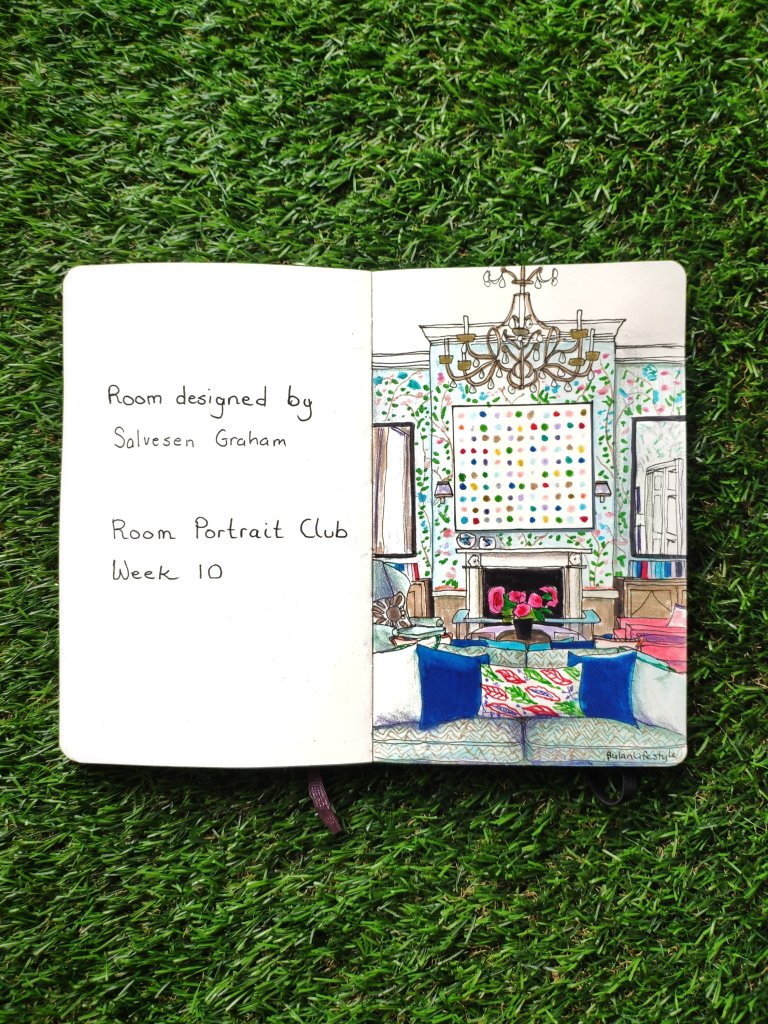 Room designed by
Salvesen Graham
Room Portrait Club
Week 10
BulanLifestyle